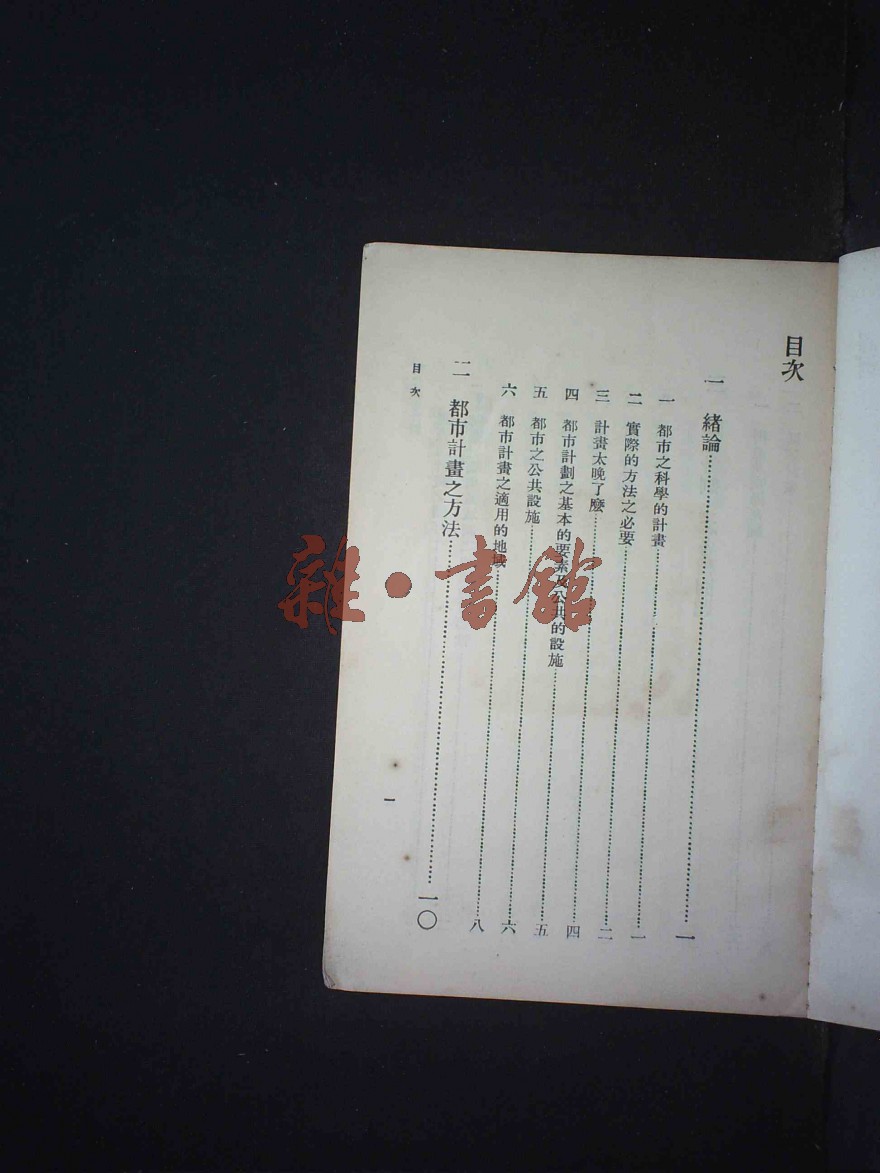 目次
一 緒論……一
一 都市之科學的計畫……一
二 實際的方法之必要……二
三 計畫太晚了麽……四
四 都市計劃之基本的要素及公共的設施……五
五 都市之公共設施……六
六 都市計畫之適用的地域……八
二 都市計畫之方法……一〇
目次
一
雜·書館